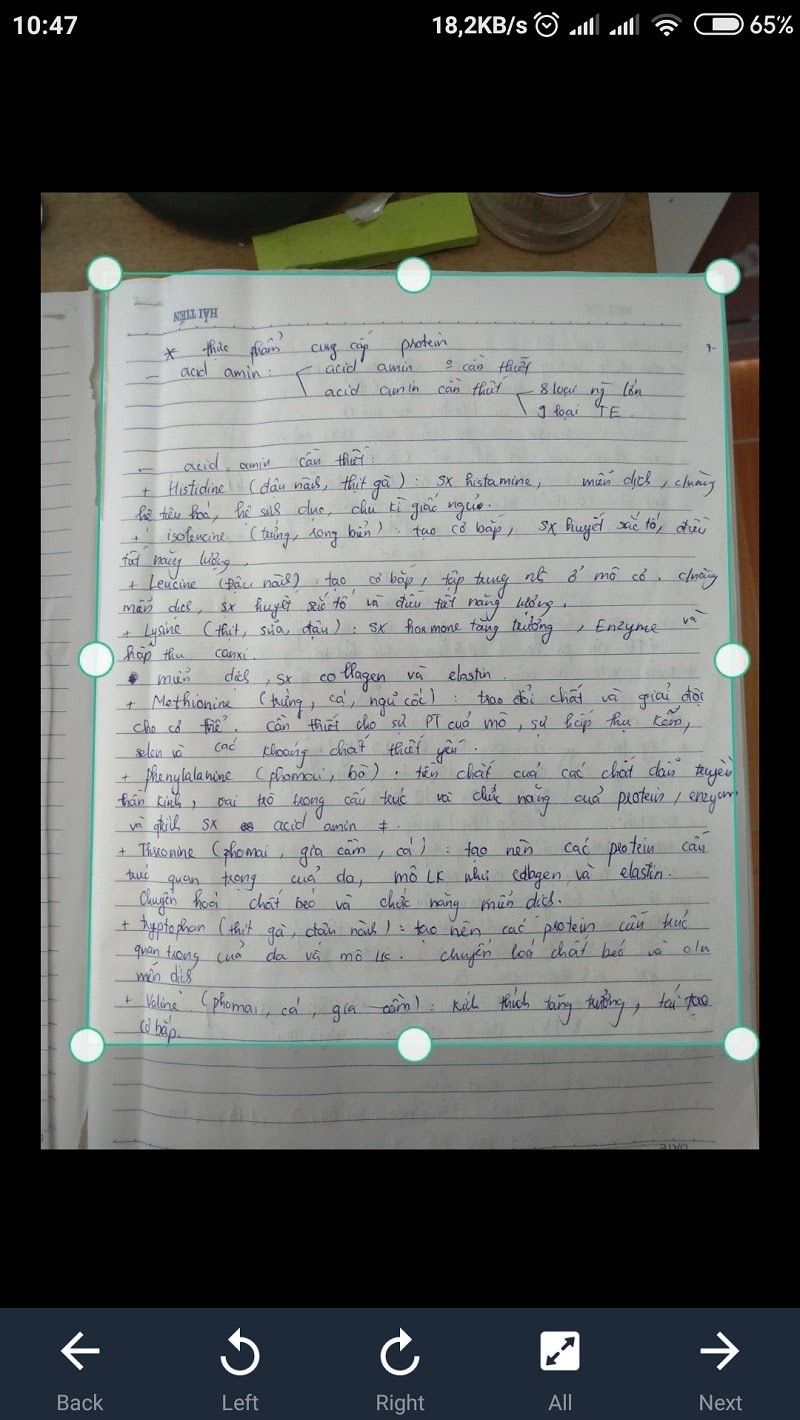 10:47 18,2KB/s 65%
HẢI TIẾN
* thực phẩm cung cấp protein
- acid amin : acid amin o cần thiết
acid amin cần thiết 8 loại ng lớn
9 loại TE.
- acid amin cần thiết :
+ Histidine (đậu nành, thịt gà) : sx histamine, miễn dịch,
hệ tiêu hoá, hệ sdục, chu kì giấc ngủ.
+ isoleucine (trứng, rong biển) : tạo cơ bắp, sx huyết sắc tố, điều
tiết năng lượng.
+ Leucine (Đậu nành) : tạo cơ bắp, tập trung nh ở mô cơ.
miễn dịch, sx huyết sắc tố và điều tiết năng lượng.
+ Lysine (thịt, sữa, đậu) : sx hormone tăng trưởng, Enzyme và
hấp thu canxi.
miễn dịch, sx collagen và elastin.
+ Methionine (trứng, cá, ngũ cốc) : trao đổi chất và giải độc
cho cơ thể. Cần thiết cho sự PT của mô, sự hấp thụ kẽm,
selen và các khoáng chất thiết yếu.
+ phenylalanine (phomai, bò) : tiền chất của các chất dẫn truyền
thần kinh, vai trò trong cấu trúc và chức năng của protein, enzym
và sx acid amin ≠.
+ Threonine (phomai, gia cầm, cá) : tạo nên các protein cấu
trúc quan trọng của da, mô LK như collagen và elastin.
Chuyển hoá chất béo và chức năng miễn dịch.
+ tryptophan (thịt gà, đậu nành) : tạo nên các protein cấu trúc
quan trọng của da và mô LK. chuyển hoá chất béo và c/n
miễn dịch
+ Valine (phomai, cá, gia cầm) : kích thích tăng trưởng, tái tạo
cơ bắp.
DATE
Back Left Right All Next